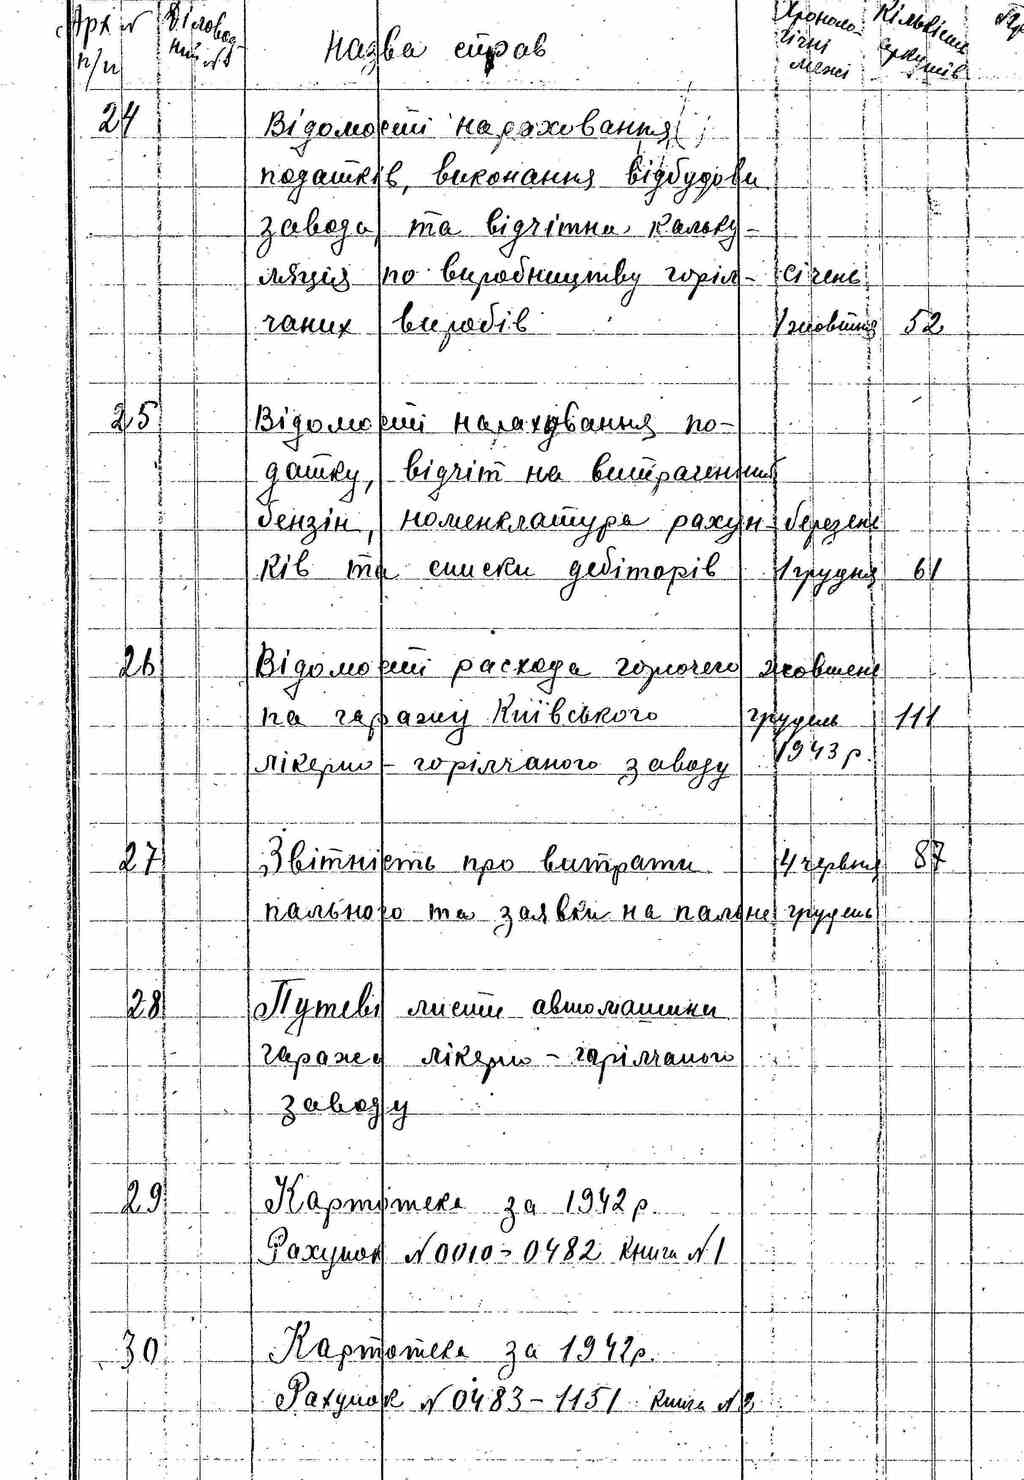 Арх № п/п
Діловод-
ний №
Назва справ
Хроноло-
гічні
межі
Кількість
аркушів
24
Відомості нарахування
податків, виконання відбудови
завода, та відчітна кальку-
ляція по виробництву горіл- січень
чаних виробів 1 жовтня 52
25
Відомості нарахування по-
датку, відчіт на витрачений
бензін, номенклатура рахун- березень
ків та списки дебіторів 1 грудня 61
26
Відомості расхода горючего жовтень
па гаражу Київського грудень 111
лікерно-горілчаного заводу 1943 р.
27
Звітність про витрати 4 червня 87
пального та заявки на пальне грудень
28
Путеві листи автомашини
гаража лікерно-горілчаного
заводу
29
Картотека за 1942 р.
Рахунок №0010-0482 книга №1
30
Картотека за 1942р.
Рахунок №0483-1151 книга №3